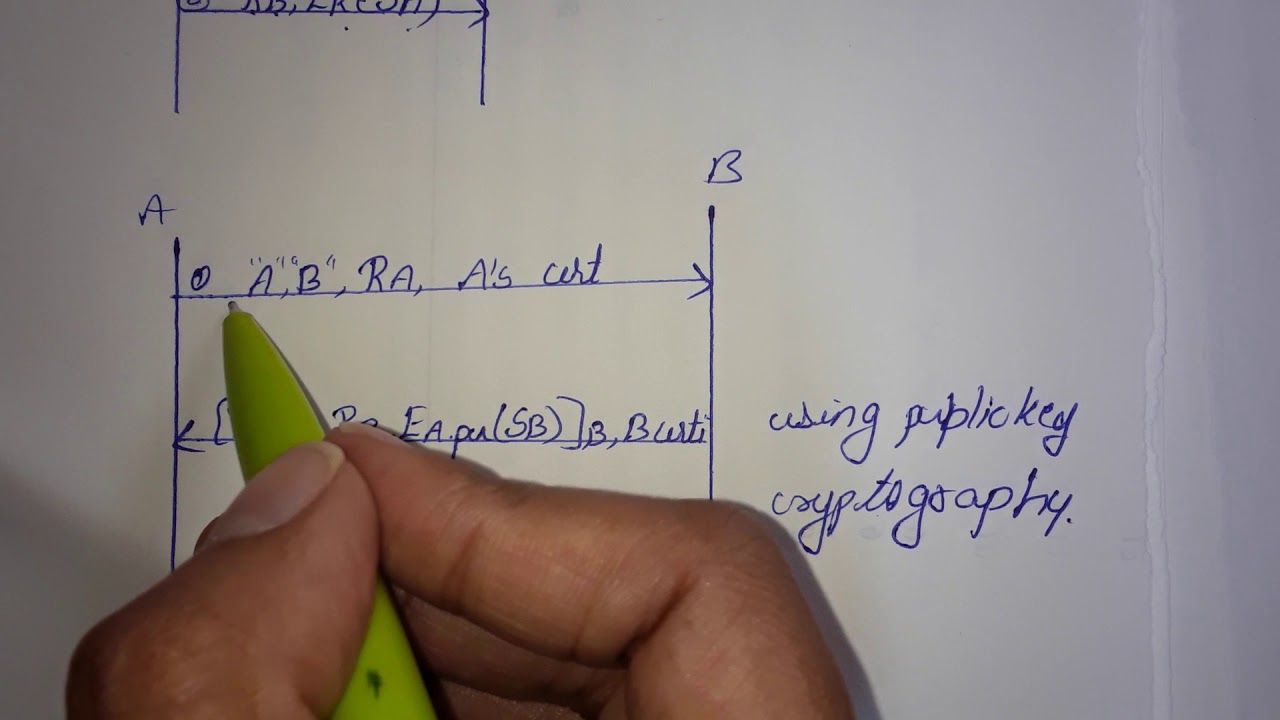 B
A
① "A", "B", RA, A's cert
[ RB, EA.pu(SB)]B, B certi
using public key
cryptography.